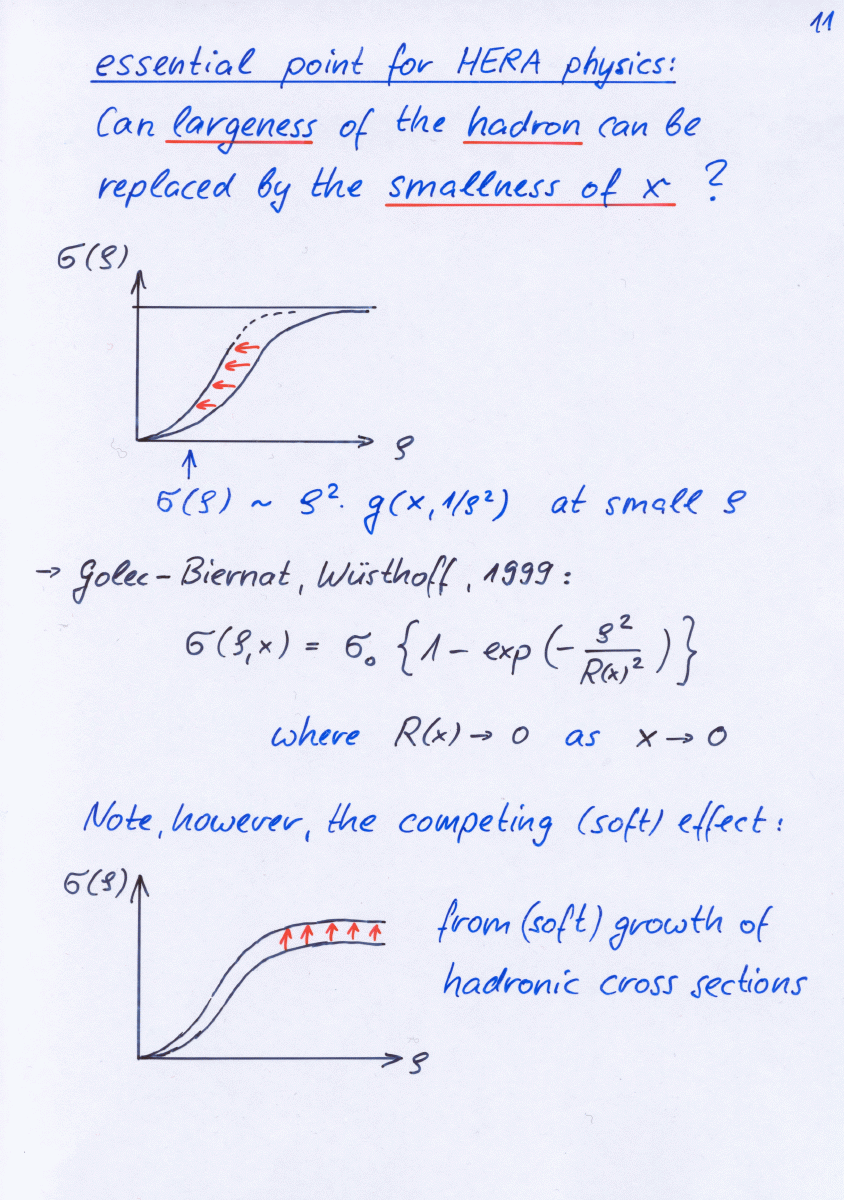 11
essential point for HERA physics:
Can largeness of the hadron can be
replaced by the smallness of x ?
σ(ρ)
ρ
σ(ρ) ~ ρ² · g(x, 1/ρ²) at small ρ
→ Golec-Biernat, Wüsthoff, 1999:
σ(ρ,x) = σ₀ {1 - exp(-ρ²/R(x)²)}
where R(x) → 0 as x → 0
Note, however, the competing (soft) effect:
σ(ρ)
from (soft) growth of
hadronic cross sections
ρ